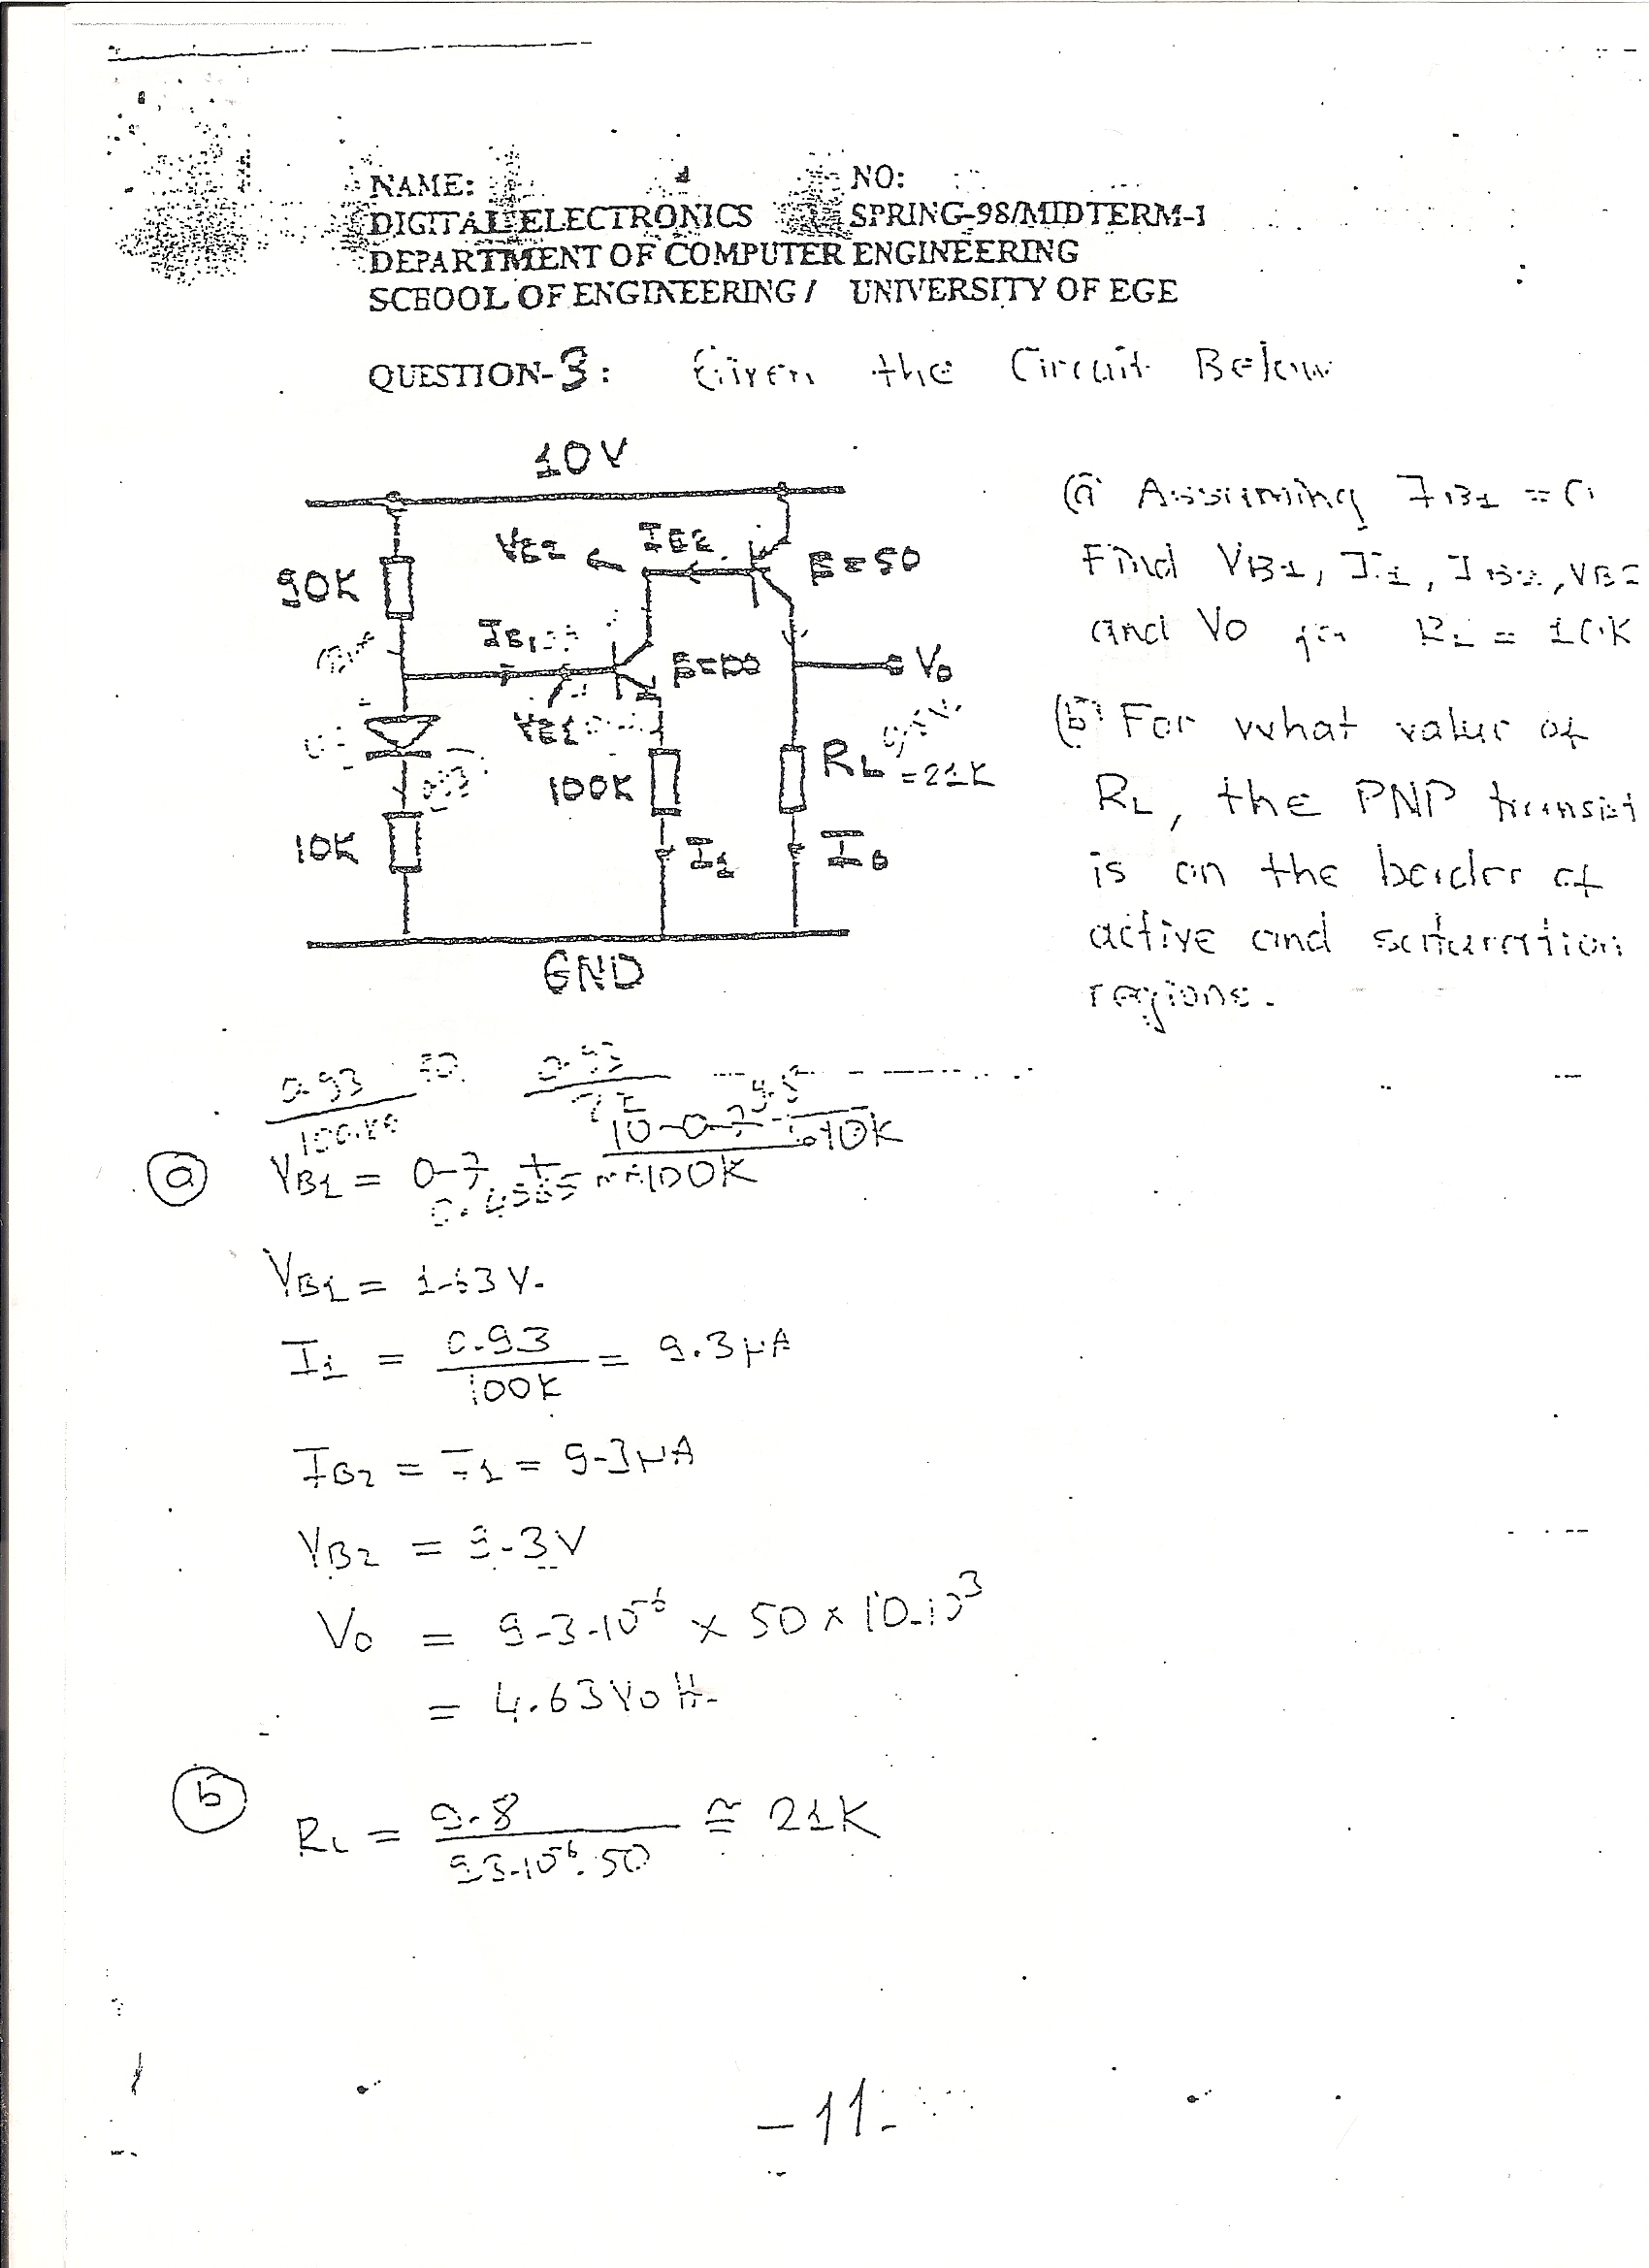 NAME: NO:
DIGITAL ELECTRONICS SPRING-98/MIDTERM-1
DEPARTMENT OF COMPUTER ENGINEERING
SCHOOL OF ENGINEERING / UNIVERSITY OF EGE
QUESTION-3: Given the Circuit Below
10V
90K
10K
100K
β=50
V0
RL
=21K
I1
I0
GND
(a) Assuming IB1 = 0
Find VB1, I1, IB2, VB2
and V0 for RL = 10K
(b) For what value of
RL, the PNP transist
is on the border of
active and saturation
regions.
0.93
100K
(a) VB1 = 0.7 + 10-0.7 / 100K . 10K
VB1 = 1.63V.
I1 = 0.93 / 100K = 9.3μA
IB2 = I1 = 9.3μA
VB2 = 9.3V
V0 = 9.3.10^-6 x 50 x 10.10^3
= 4.63 Volt.
(b) RL = 9.8 / 9.3.10^-6.50 ≅ 21K
-11-